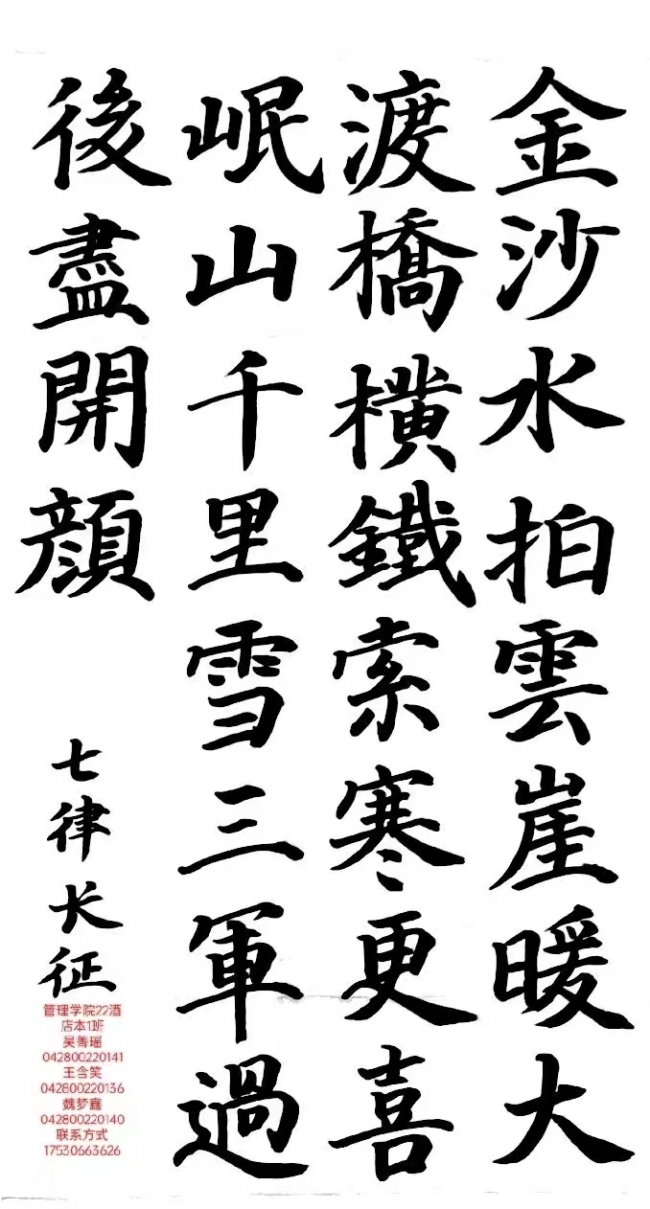 金沙水拍雲崖暖大
渡橋横鐵索寒更喜
岷山千里雪三軍過
後盡開顔
七律长征
管理学院22酒
店本1班
吴善瑶
042800220141
王含笑
042800220136
魏梦鑫
042800220140
联系方式
17530663626